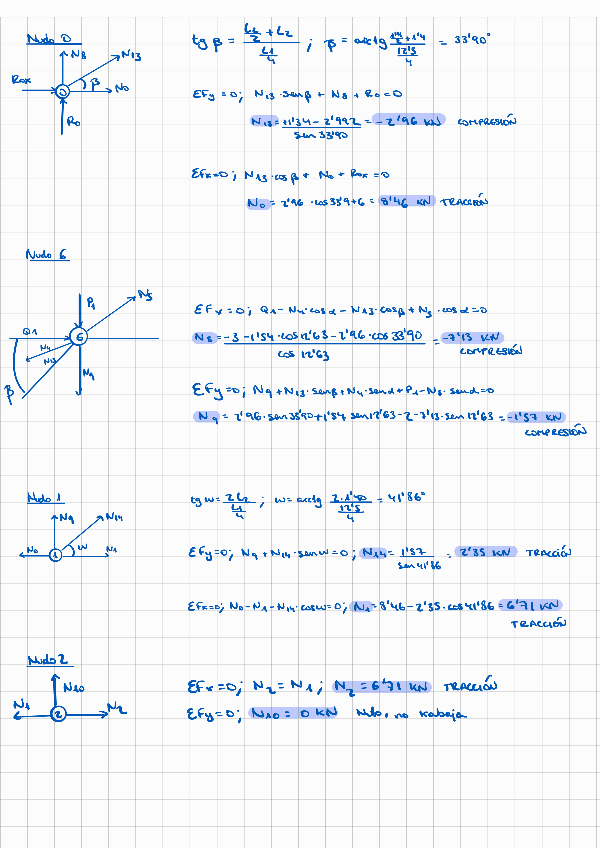 Nudo 0
N8
N13
Rox
0
β
N0
R0
tg β = (L2/2 + L2) / (L1/4) ; β = arctg (1'4/2 + 1'4) / (12'5/4) = 33'90°
ΣFy = 0; N13 · sen β + N8 + R0 = 0
N13 = (+1'34 - 2'992) / sen 33'90 = -2'96 KN COMPRESIÓN
ΣFx=0; N13 · cos β + N0 + Rox = 0
N0 = 2'96 · cos 33'9+6 = 8'46 KN TRACCIÓN
Nudo 6
P1
N5
Q1
6
N4
N13
N9
β
ΣFx = 0; Q1 - N4 · cos α - N13 · cos β + N5 · cos α = 0
N5 = (-3 - 1'54 · cos 12'63 - 2'96 · cos 33'90) / cos 12'63 = -7'13 KN
COMPRESIÓN
ΣFy=0; N9 + N13 · sen β + N4 · sen α + P1 - N5 · sen α = 0
N9 = 2'96 · sen 33'90 + 1'54 sen 12'63 - 2 - 7'13 · sen 12'63 = -1'57 KN
COMPRESIÓN
Nudo 1
N9
N14
N0
1
w
N1
tg w = 2L2 / (L1/4) ; w = arctg (2 · 1'40) / (12'5/4) = 41'86°
ΣFy=0; N9 + N14 · sen w = 0; N14 = 1'57 / sen 41'86 = 2'35 KN TRACCIÓN
ΣFx=0; N0 - N1 - N14 · cos w = 0; N1 = 8'46 - 2'35 · cos 41'86 = 6'71 KN
TRACCIÓN
Nudo 2
N10
N1
2
N2
ΣFx = 0; N2 = N1; N2 = 6'71 KN TRACCIÓN
ΣFy = 0; N10 = 0 KN Nulo, no trabaja